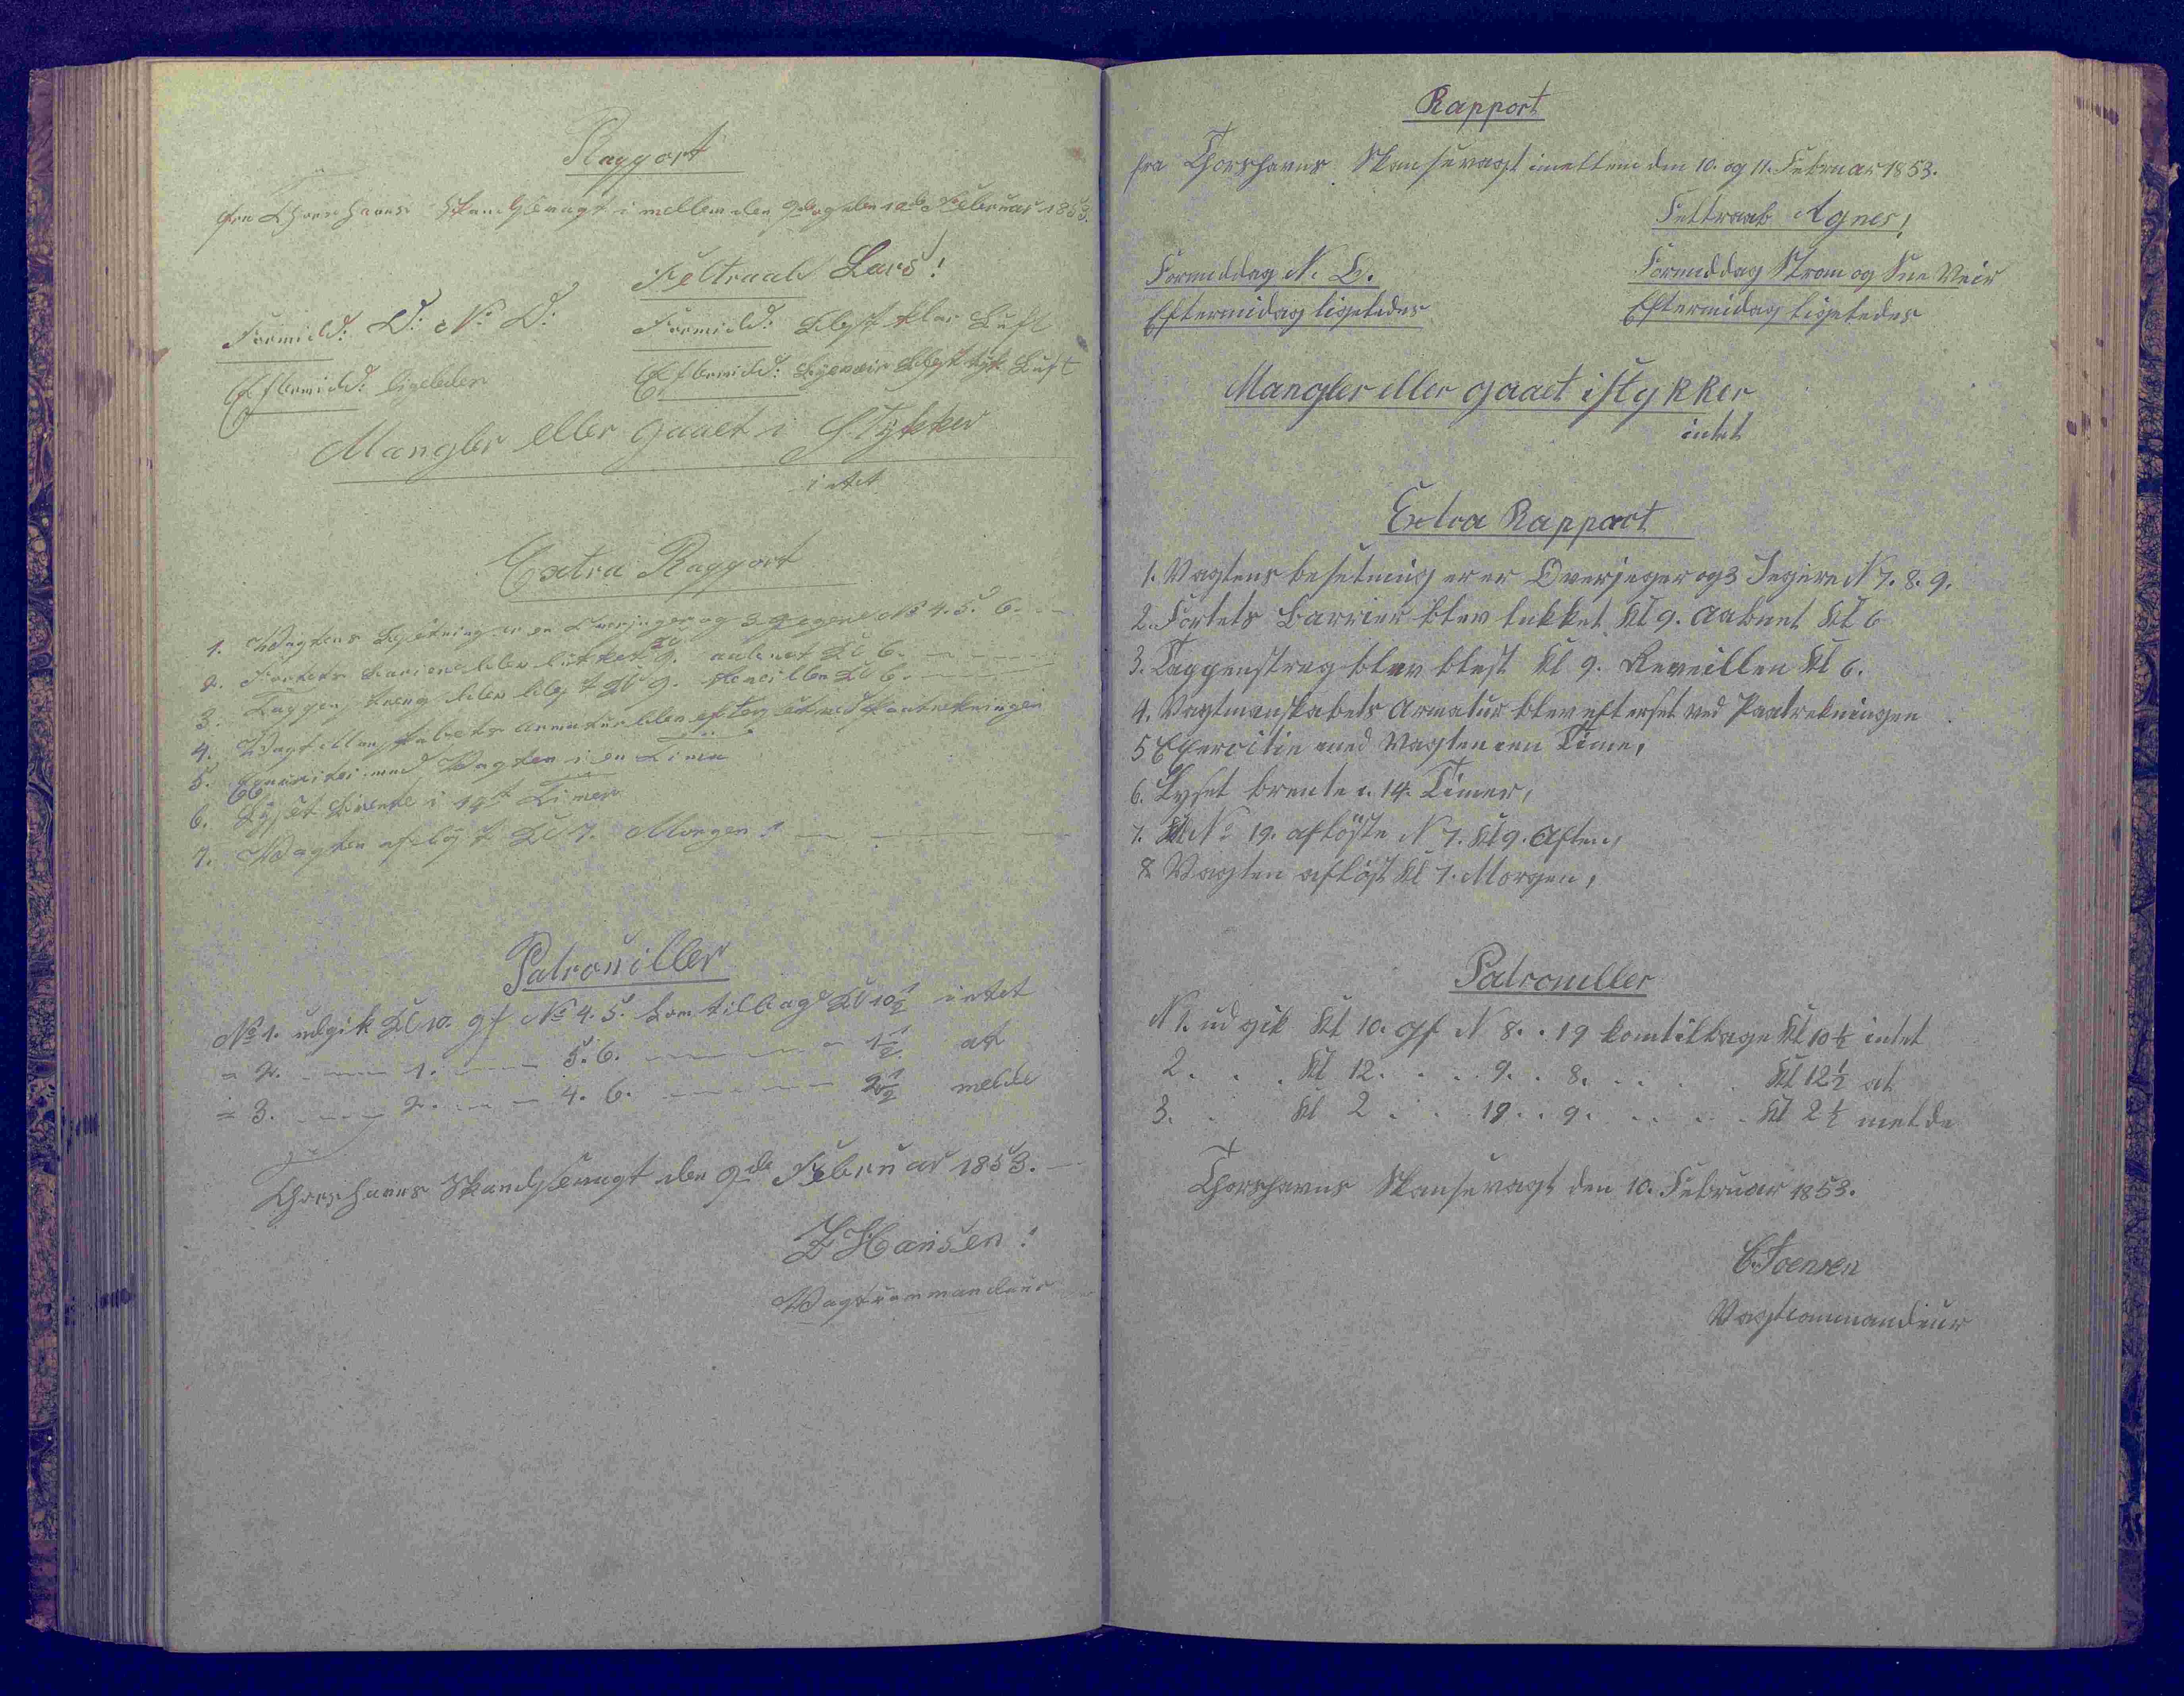 Rapport
fra Thorshavns Skandsevagt i mellem den 9de og den 10de Februar 1853.
Feltraab Lars!
Formidd: V: N: V:
Formidd: Blæst klar Luft
Eftermidd: ligeledes
Eftermidd: Byeveir Blæst tyk Luft
Mangler eller gaaet i Stykker
intet
Extra Rapport
1. Vagtens Besetning er en Overjeger og 3 Jegere No 4. 5. 6.
2. Fortets Bariere blev lukket Kl 9. aabnet Kl 6.
3. Tappenstreng blev blest Kl 9. Reveillen Kl 6.
4. Vagt Manskabets Armatur blev efterset ved Paatrekningen
5. Exercitsi med Vagten i en Time
6. Lyset brente i 14 Timer
7. Vagten afløst Kl 7. Morgen!
Patrouiller
No 1. udgik Kl 10. gf No 4. 5. kom tilbage Kl 10½ intet
= 2. — 1. — 5. 6. — — 1½ at
= 3. — 2. — 4. 6. — — 2½ melde
Thorshavns Skandsevagt den 9de Februar 1853.
Z Hansen!
Vagtcommandeur
Rapport
fra Thorshavns Skansevagt imellem den 10. og 11. Februar 1853.
Feltraab Agnes!
Formiddag N. O.
Formiddag Strom og Sne Veir
Eftermidag ligeledes
Eftermidag ligeledes
Mangler eller gaaet istykker
intet
Extra Rapport
1. Vagtens besetning er er Overjeger og 3 Jegere N 7. 8. 9.
2. Fortets Barrier blev lukket Kl 9. aabnet Kl 6
3. Tappenstreg blev blest Kl 9. Reveillen Kl 6.
4. Vagtmanskabets Armatur blev efterset ved Paatrekningen
5 Exercitie med Vagten i en Time,
6. Lyset brente i. 14. Timer,
7. No 19. afløste N 7. Kl 9. Aften,
8 Vagten afløst Kl 7. Morgen,
Patrouiller
N 1. ud gik Kl 10. gf N 8. . 19 kom tilbage Kl 10½ intet
2. . . . Kl 12. . . . 9. . 8. . . . . Kl 12½ at
3. . Kl 2 . . . 19. . 9. . . . . Kl 2½ melde
Thorshavns Skansevagt den 10. Februar 1853.
C. Joensen
Vagtcommandeur